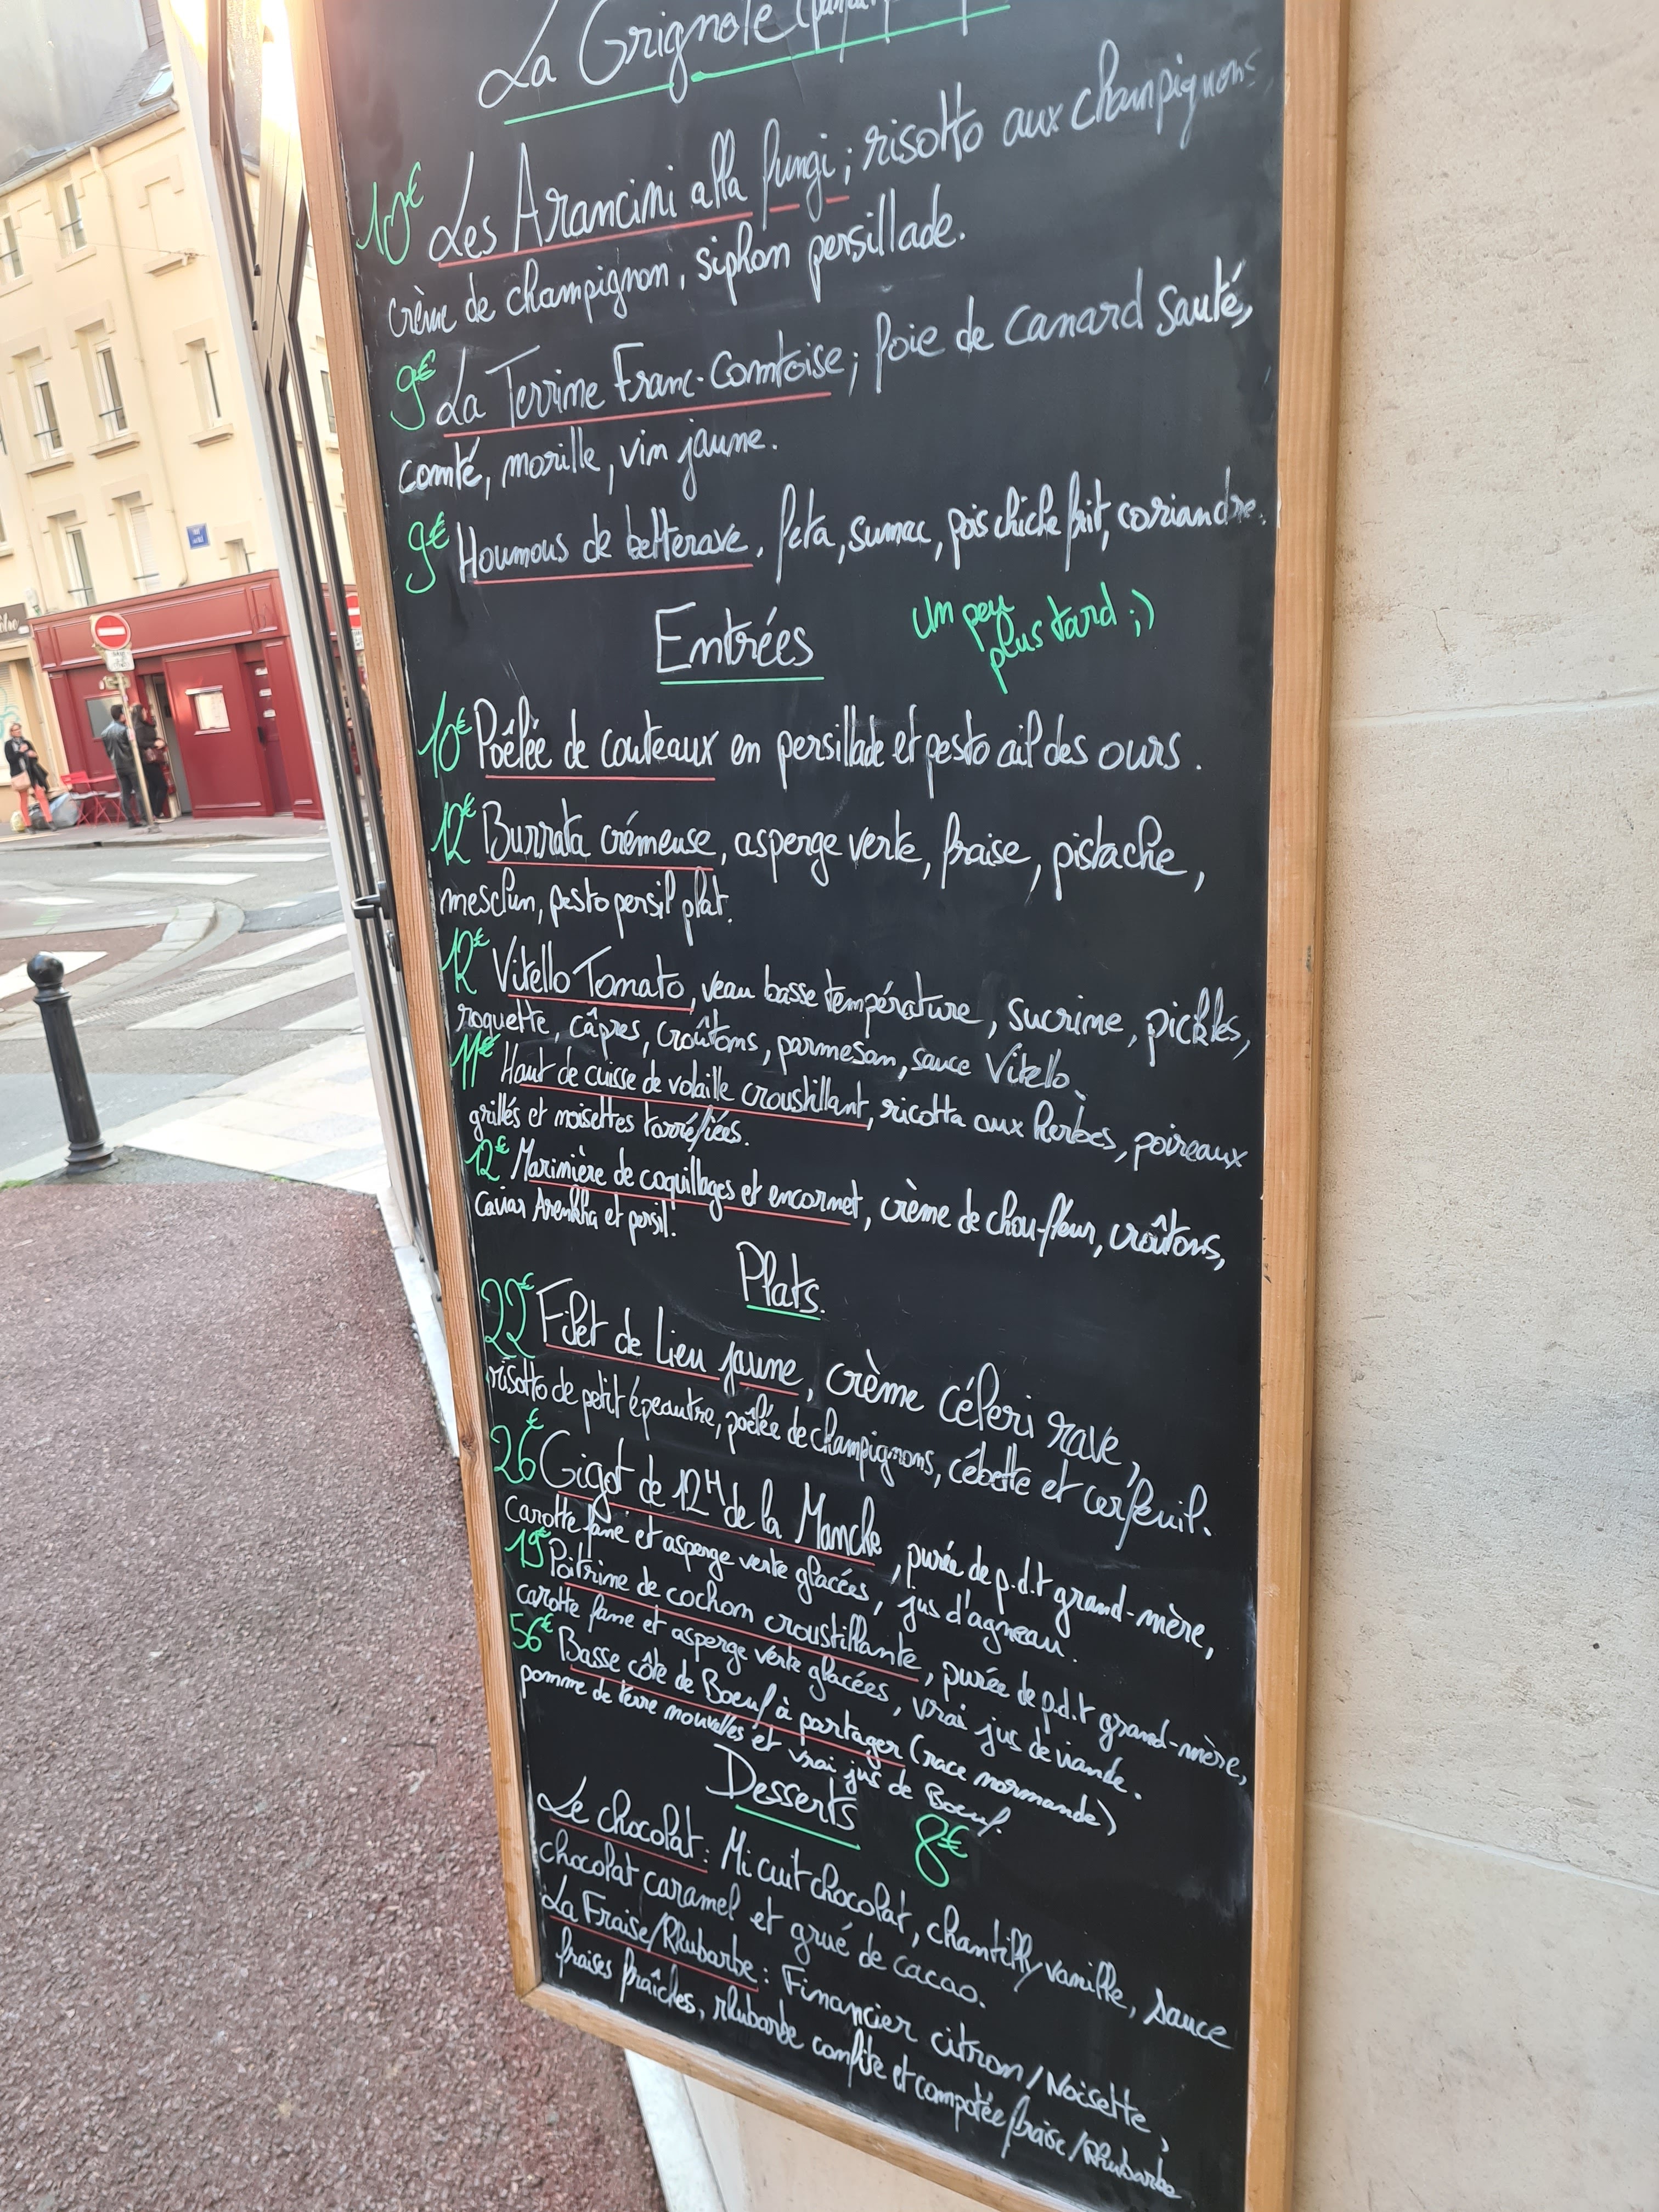 La Grignote
10€ Les Arancini alla fungi; risotto aux champignons
crème de champignon, siphon persillade.
9€ La Terrine Franc-Comtoise; foie de canard sauté,
comté, morille, vin jaune.
9€ Houmous de betterave, feta, sumac, pois chiche frit, coriandre.
Entrées
Un peu
plus tard ;)
10€ Poêlée de couteaux en persillade et pesto ail des ours.
12€ Burrata crémeuse, asperge verte, fraise, pistache,
mesclun, pesto persil plat.
12€ Vitello Tomato, veau basse température, sucrine, pickles,
roquette, câpres, croûtons, parmesan, sauce Vitello.
11€ Haut de cuisse de volaille croustillant, ricotta aux herbes, poireaux
grillés et noisettes torréfiées.
12€ Marinière de coquillages et encornet, crème de chou-fleur, croûtons,
caviar Arenkha et persil.
Plats
22€ Filet de Lieu jaune, crème céleri rave,
risotto de petit épeautre, poêlée de champignons, cébette et cerfeuil.
26€ Gigot de 12H de la Manche, purée de p.d.t grand-mère,
carotte fane et asperge verte glacées, jus d'agneau.
19€ Poitrine de cochon croustillante, purée de p.d.t grand-mère,
carotte fane et asperge verte glacées, vrai jus de viande.
56€ Basse côte de Boeuf à partager (race normande)
pomme de terre nouvelles et vrai jus de Boeuf.
Desserts 8€
Le chocolat: Mi cuit chocolat, chantilly vanille, sauce
chocolat caramel et grué de cacao.
La Fraise/Rhubarbe: Financier citron/Noisette,
fraises fraîches, rhubarbe confite et compotée fraise/Rhubarbe